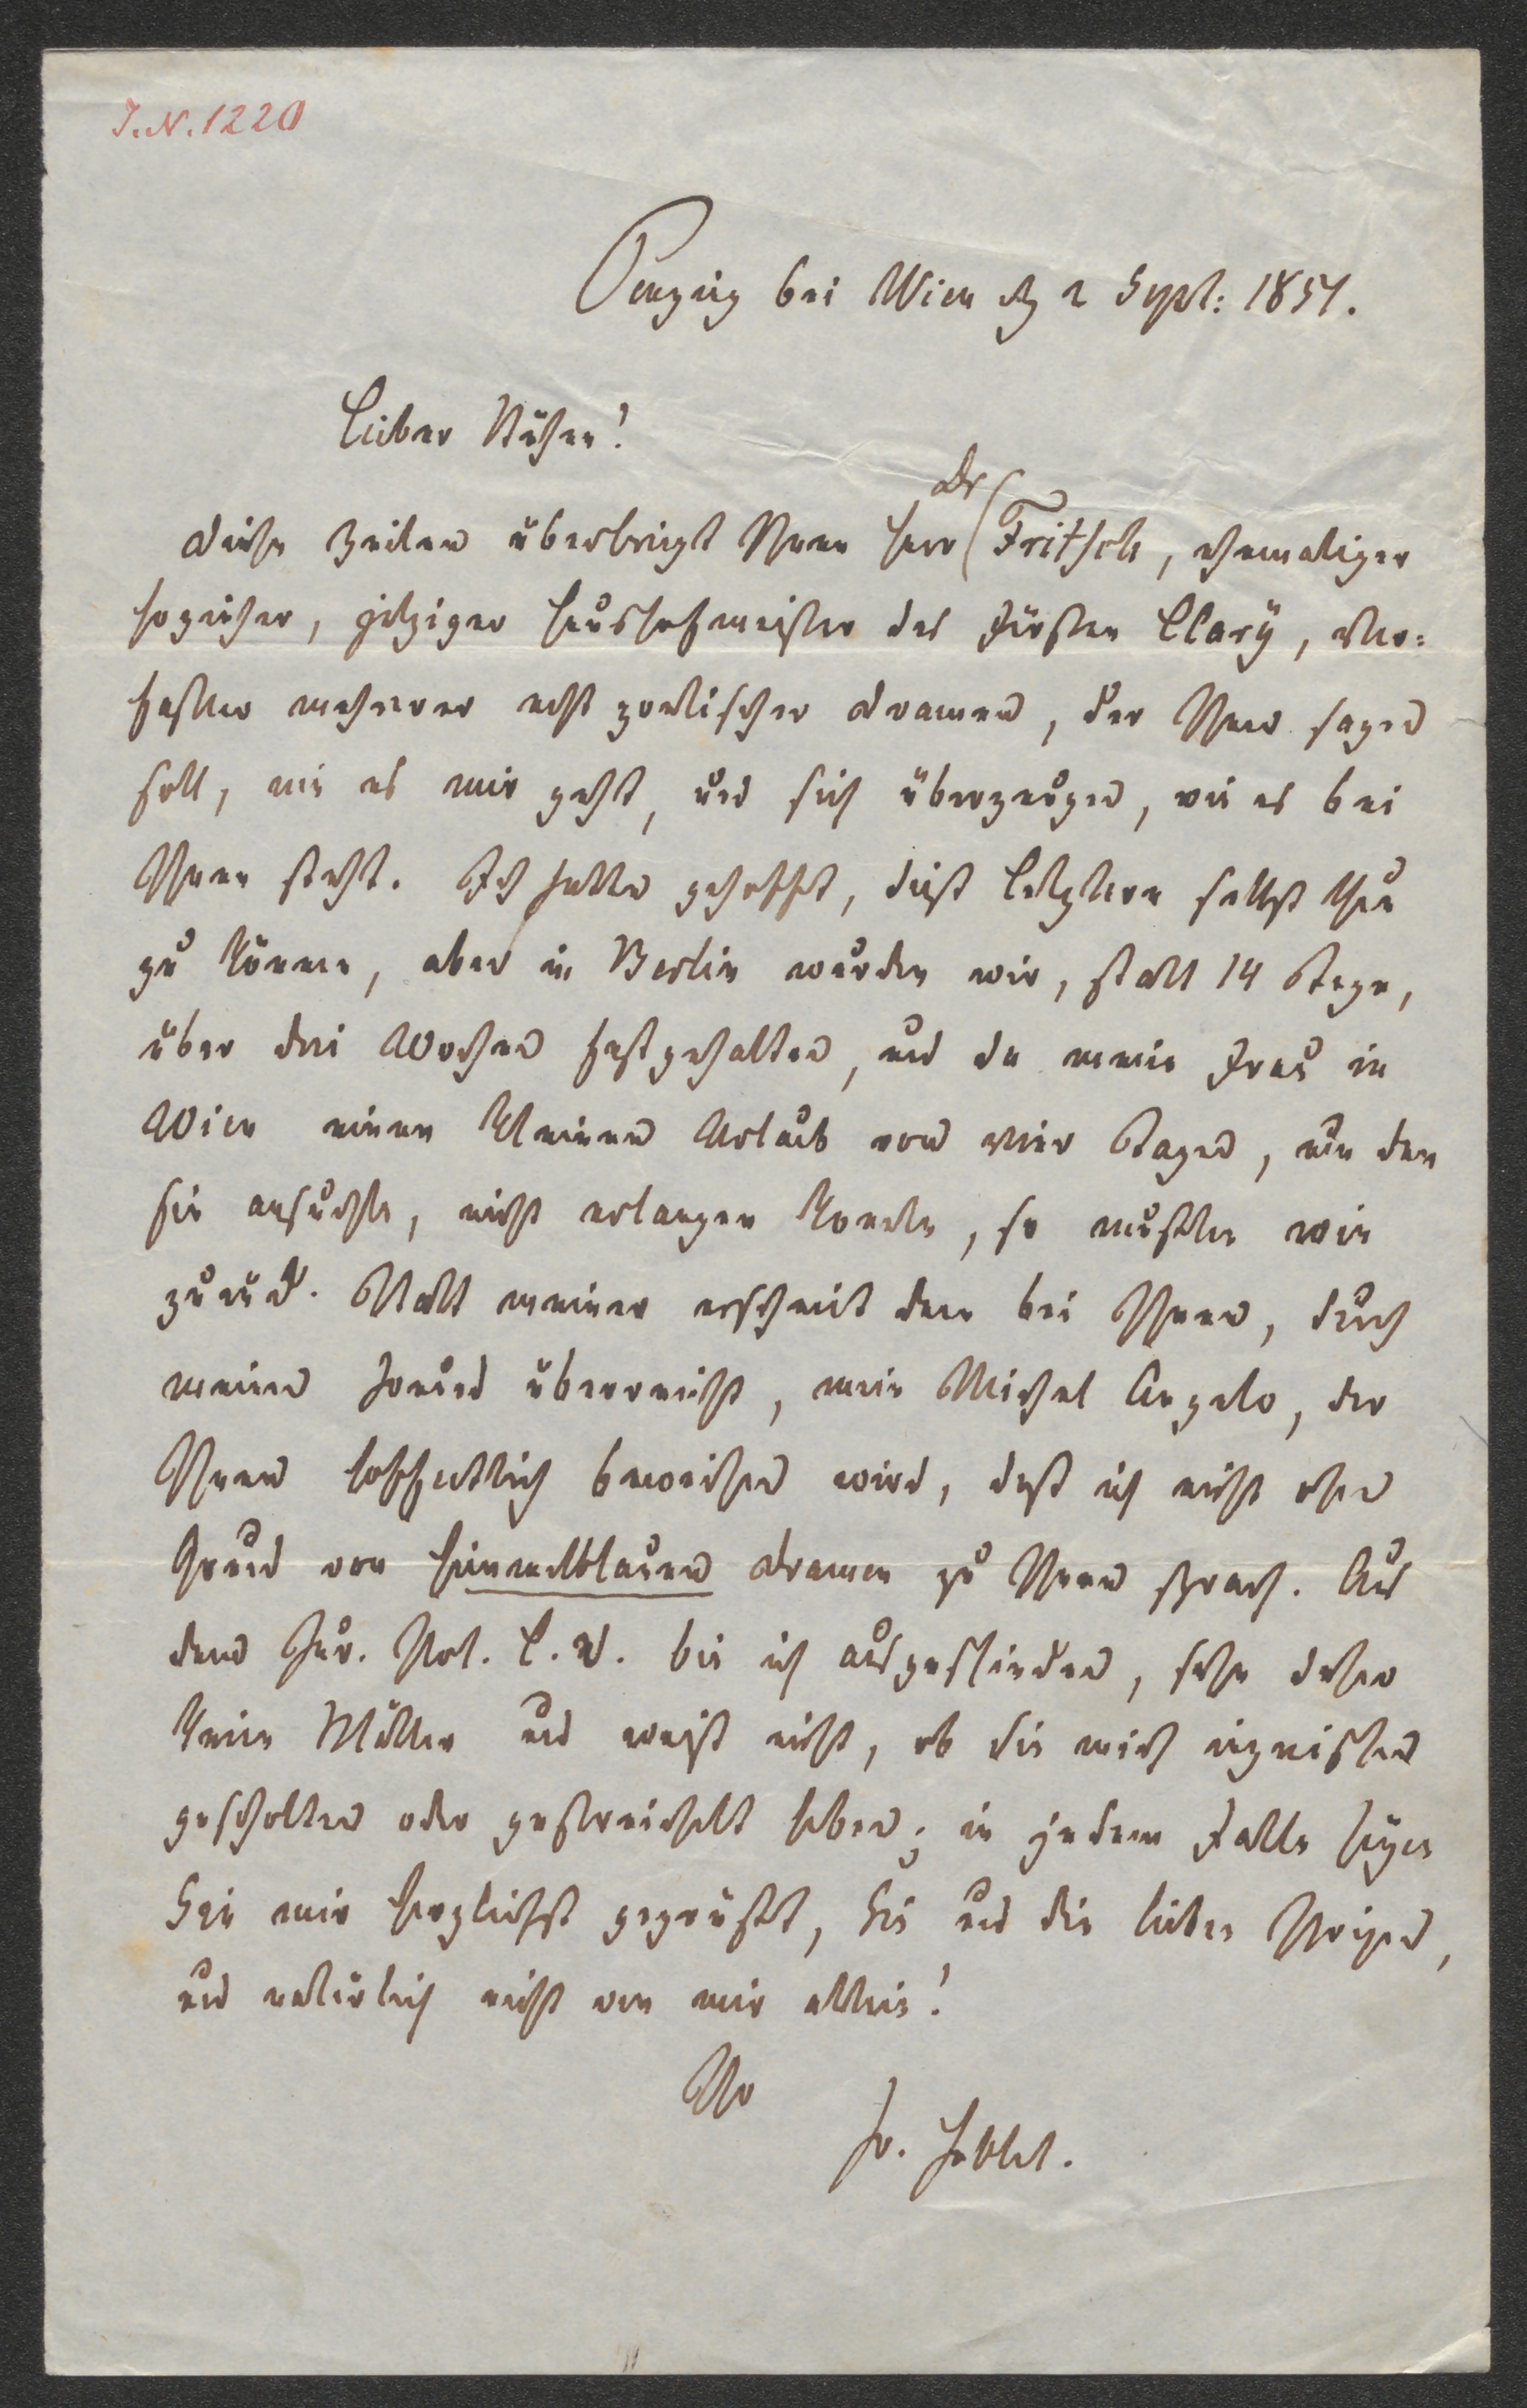 I.N. 1220
Penzing bei Wien d 2 Sept: 1851.
Lieber Kühne!
Diese Zeilen überbringt Ihnen Herr Dr Fritsch, ehemaliger
Erzieher, jetziger Haushofmeister des Fürsten Clary, Ver=
fasser mehrerer ächt poetischer Dramen, der Ihnen sagen
soll, wie es mir geht, und sich überzeugen, wie es bei
Ihnen steht. Ich hatte gehofft, dieß Letztere selbst thun
zu können, aber in Berlin wurden wir, statt 14 Tage,
über drei Wochen festgehalten, und da meine Frau in
Wien einen kleinen Urlaub von vier Tagen, um den
sie ansuchte, nicht erlangen konnte, so mußten wir
zurück. Statt meiner erscheint denn bei Ihnen, durch
meinen Freund überreicht, mein Michel Angelo, der
Ihnen hoffentlich beweisen wird, daß ich nicht ohne
Grund von himmelblauen Dramen zu Ihnen sprach. Aus
dem Jur. Pol. L.V. bin ich ausgeschieden, sehe daher
keine Blätter und weiß nicht, ob Sie mich inzwischen
gescholten oder gestreichelt haben; in jedem Falle seyen
Sie mir herzlichst gegrüßt, Sie und die lieben Ihrigen,
und natürlich nicht von mir allein!
Ihr
Fr. Hebbel.